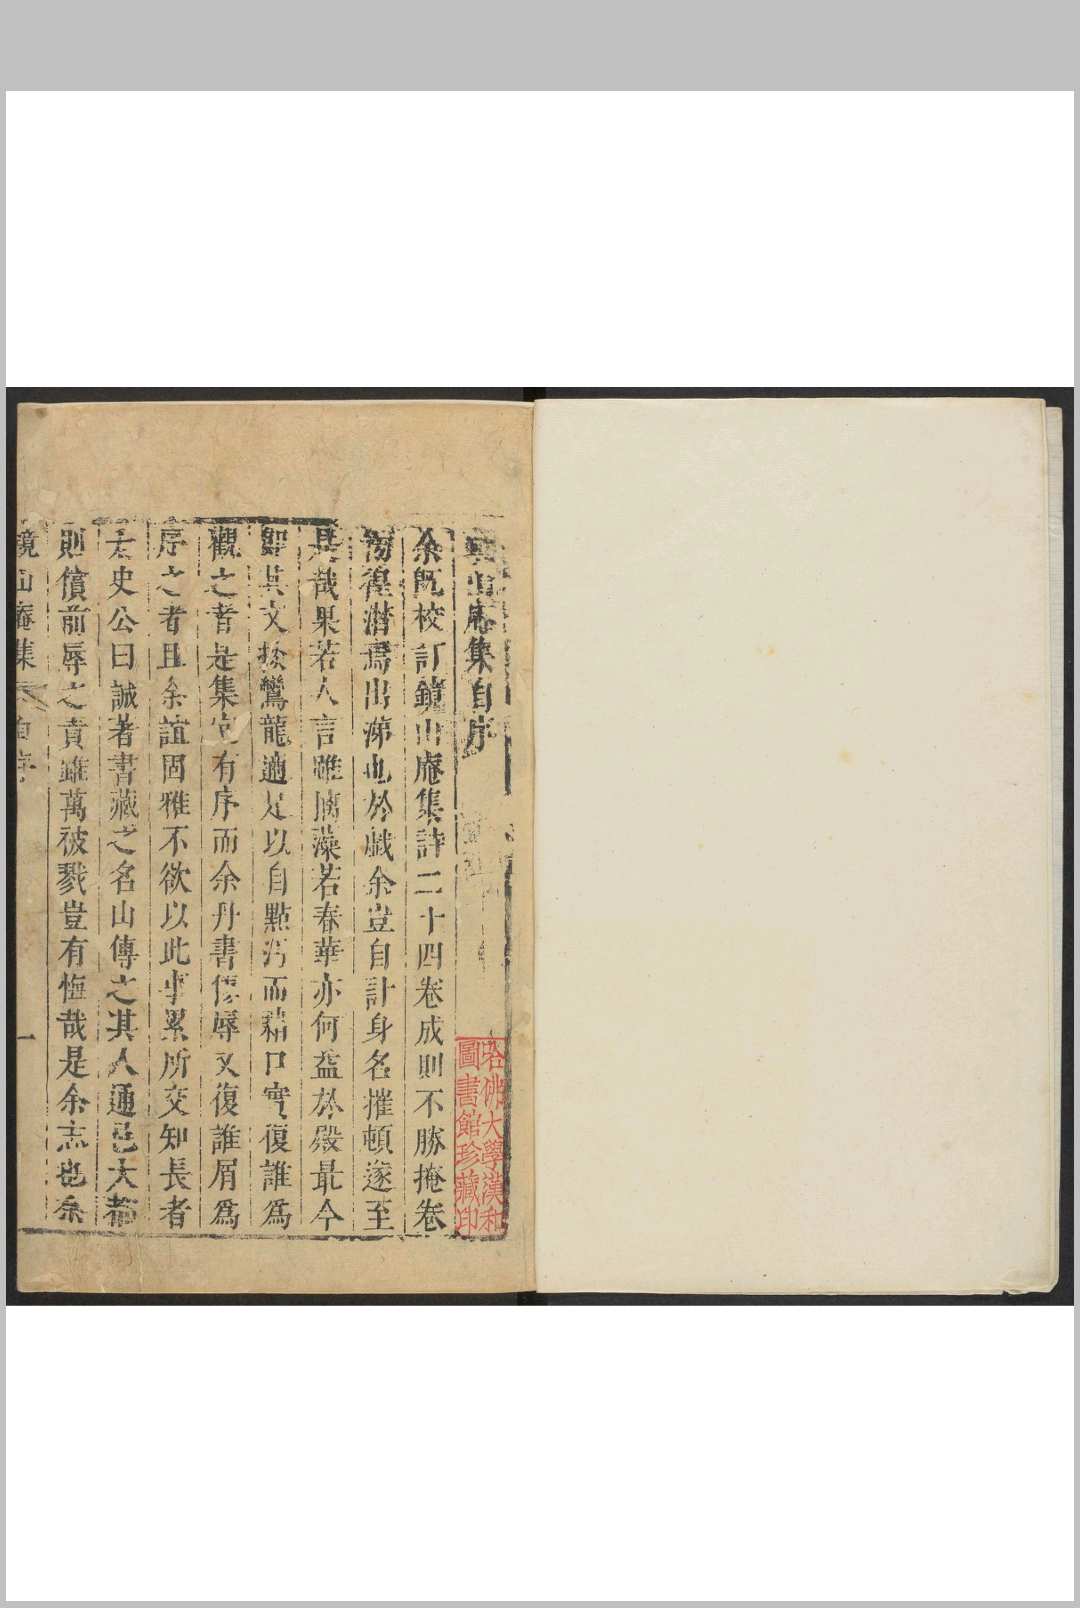 鏡山庵集自序
余旣校訂鏡山庵集詩二十四卷成則不勝掩卷
徬徨潸焉出涕也於戲余豈自計身名摧頓遂至
是哉果若人言雖摛藻若春華亦何益於殿最今
卽其文掞鸞龍適足以自點污而藉口實復誰爲
觀之者是集宜有序而余丹書僇辱又復誰屑爲
序之者且余誼固雅不欲以此事累所交知長者
太史公曰誠著書藏之名山傳之其人通邑大都
則償前辱之責雖萬被戮豈有悔哉是余志也余
鏡山庵集 自序 一
哈佛大學漢和
圖書館珍藏印